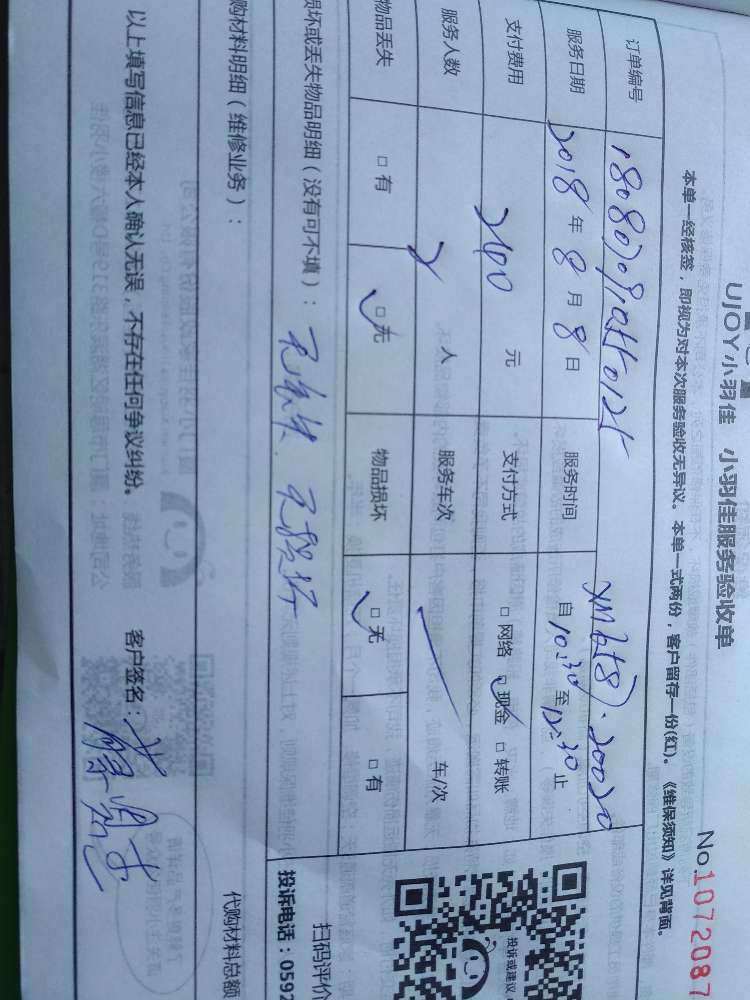 UJOY小羽佳 小羽佳服务验收单
No.1072087
本单一经核签，即视为对本次服务验收无异议。本单一式两份，客户留存一份(红)。《维保须知》详见背面。
订单编号
服务日期 2018年8月8日 服务时间 自10:30至12:30止
支付费用 元 支付方式 □网络 □现金 □转账
服务人数 2人 服务车次 车/次
物品丢失 □有 □无 物品损坏 □无 □有
损坏或丢失物品明细（没有可不填）： 无丢失 无损坏
购材料明细（维修业务）：
代购材料总额
以上填写信息已经本人确认无误，不存在任何争议纠纷。 客户签名：
投诉或建议
扫码评价
投诉电话：0592